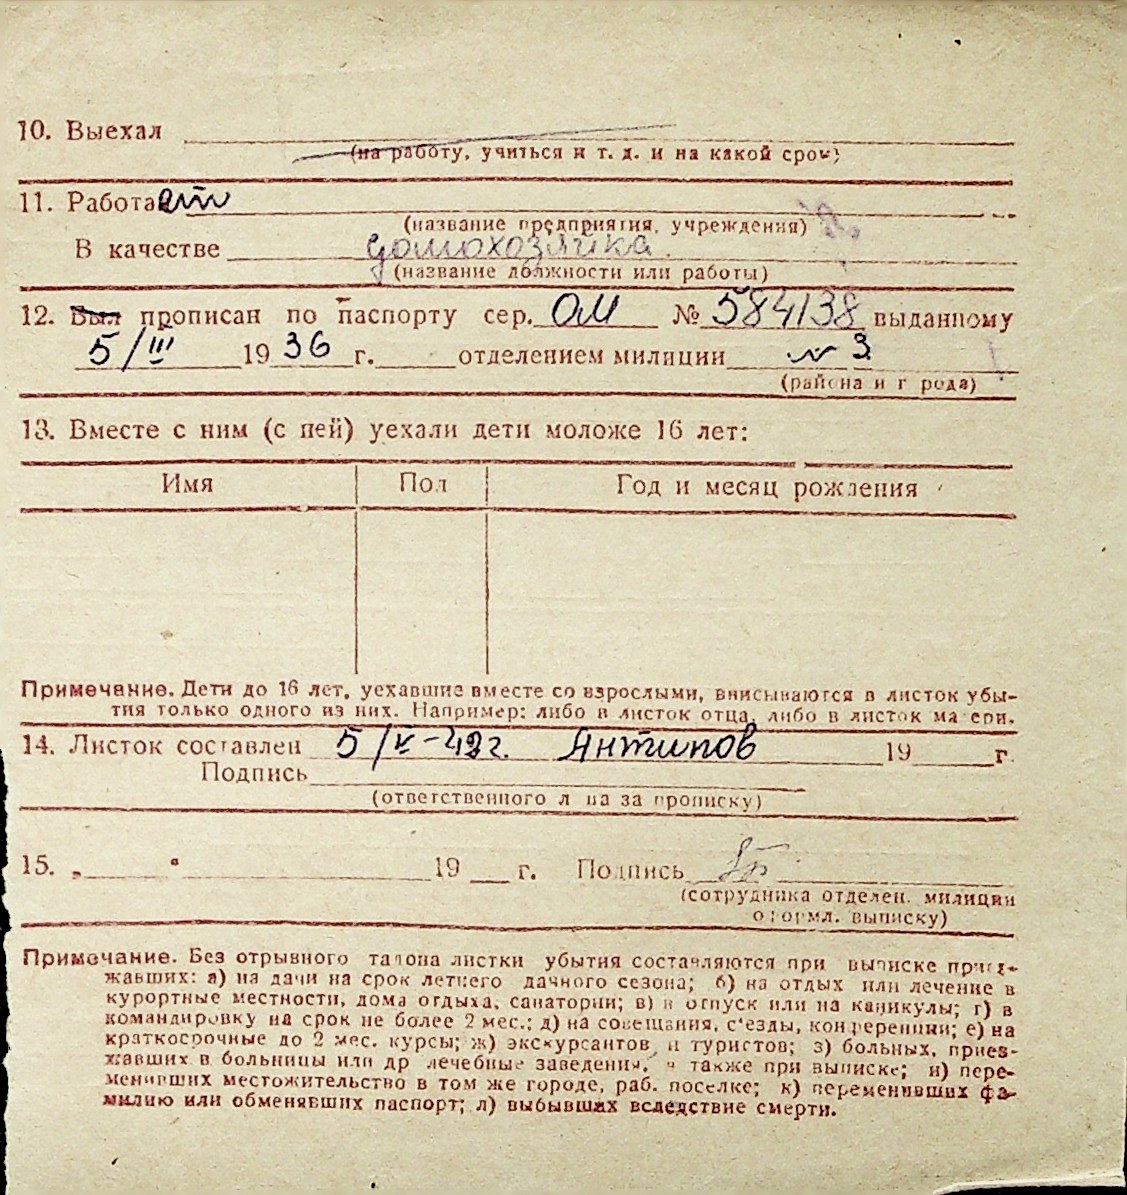 10. Выехал
(на работу, учиться и т. д. и на какой срок)
11. Работает
(название предприятия, учреждения)
В качестве домохозяйка
(название должности или работы)
12. Был прописан по паспорту сер. ОМ № 584138 выданному
5/III 1936 г. отделением милиции № 3
(района и города)
13. Вместе с ним (с ней) уехали дети моложе 16 лет:
Имя Пол Год и месяц рождения
Примечание. Дети до 16 лет, уехавшие вместе со взрослыми, вписываются в листок убы-
тия только одного из них. Например: либо в листок отца, либо в листок матери.
14. Листок составлен 5/ Антипов 19 г.
Подпись
(ответственного лица за прописку)
15. „ “ 19 г. Подпись
(сотрудника отделен. милиции
оформл. выписку)
Примечание. Без отрывного талона листки убытия составляются при выписке приез-
жавших: а) на дачи на срок летнего дачного сезона; б) на отдых или лечение в
курортные местности, дома отдыха, санатории; в) в отпуск или на каникулы; г) в
командировку на срок не более 2 мес.; д) на совещания, с'езды, конференции; е) на
краткосрочные до 2 мес. курсы; ж) экскурсантов и туристов; з) больных, приез-
жавших в больницы или др лечебные заведения, а также при выписке; и) пере-
менивших местожительство в том же городе, раб. поселке; к) переменивших фа-
милию или обменявших паспорт; л) выбывших вследствие смерти.